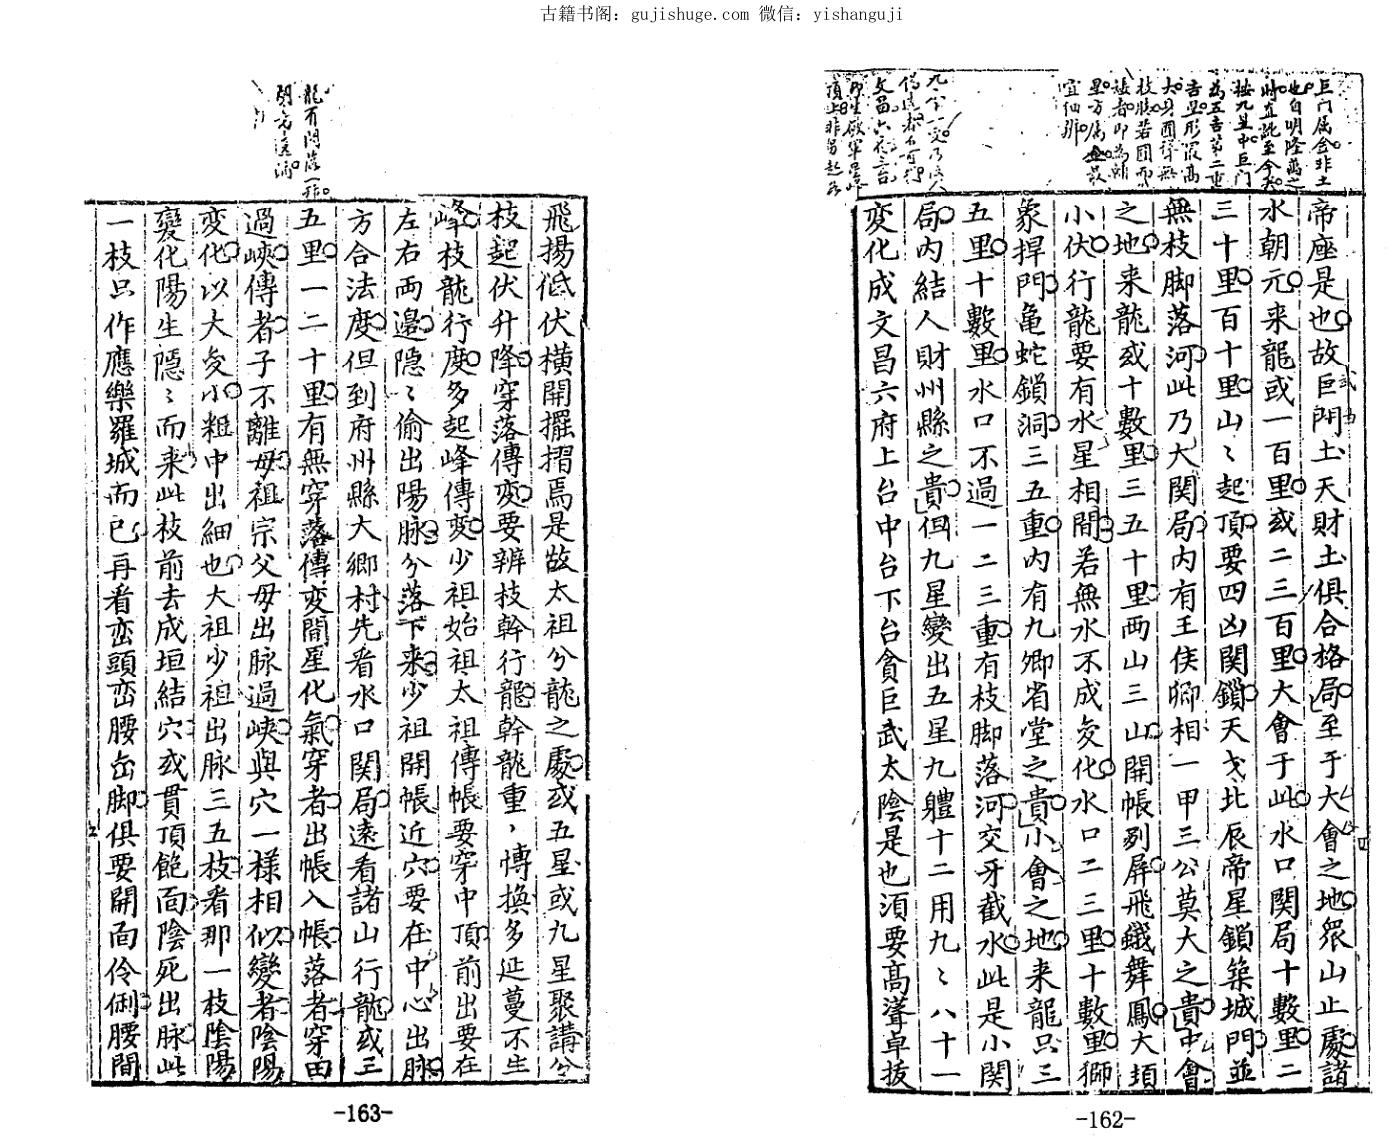 古籍书阁：gujishuge.com 微信：yishanguji
巨門属金非土
也自明隆萬之
時直訛至今矣
按九星中巨門
為五吉第二重
吉星形最高
大身圓得無
枝脚若圓而
方属
宜仙
九八十一変乃後人
文昌六府三台
頂上非另起
帝座是也故巨門土天財土俱合格局至于大會之地衆山止處諸
水朝元来龍或一百里或二三百里大會于此水口関局十數里二
三十里百十里山〻起頂要四凶関鎖天戈北辰帝星鎖築城門並
無枝脚落河此乃大関局内有王侯卿相一甲三公莫大之貴中會
之地来龍或十數里三五十里両山三山開帳列屏飛蛾舞鳳大頓
小伏行龍要有水星相間若無水不成変化水口二三里十數里獅
象捍門亀蛇鎖洞三五重内有九卿省堂之貴小會之地来龍只三
五里十數里水口不過一二三重有枝脚落河交牙截水此是小関
局内結人財州縣之貴但九星變出五星九體十二用九〻八十一
変化成文昌六府上台中台下台貪巨武太陰是也須要高聳卓拔
-162-
龍有閃落一
飛揚低伏橫開擺摺焉是故太祖分龍之處或五星或九星聚講分
枝起伏升降穿落傳変要辨枝幹行龍幹龍重，博換多延蔓不生
峰枝龍行度多起峰傳変少祖始祖太祖傳帳要穿中頂前出要在
左右両邊隐〻偷出陽脉分落下来少祖開帳近穴要在中心出脉
方合法度但到府州縣大鄉村先看水口関局遠看諸山行龍或三
五里一二十里有無穿落傳変間星化氣穿者出帳入帳落者穿田
過峽傳者子不離母祖宗父母出脉過峽與穴一樣相似變者陰陽
変化以大変小粗中出細也大祖少祖出脉三五枝看那一枝陰陽
變化陽生隠〻而来此枝前去成垣結穴或貫頂飽面陰死出脉此
一枝只作應樂羅城而已再看峦頭峦腰峦脚俱要開面伶俐腰間
-163-